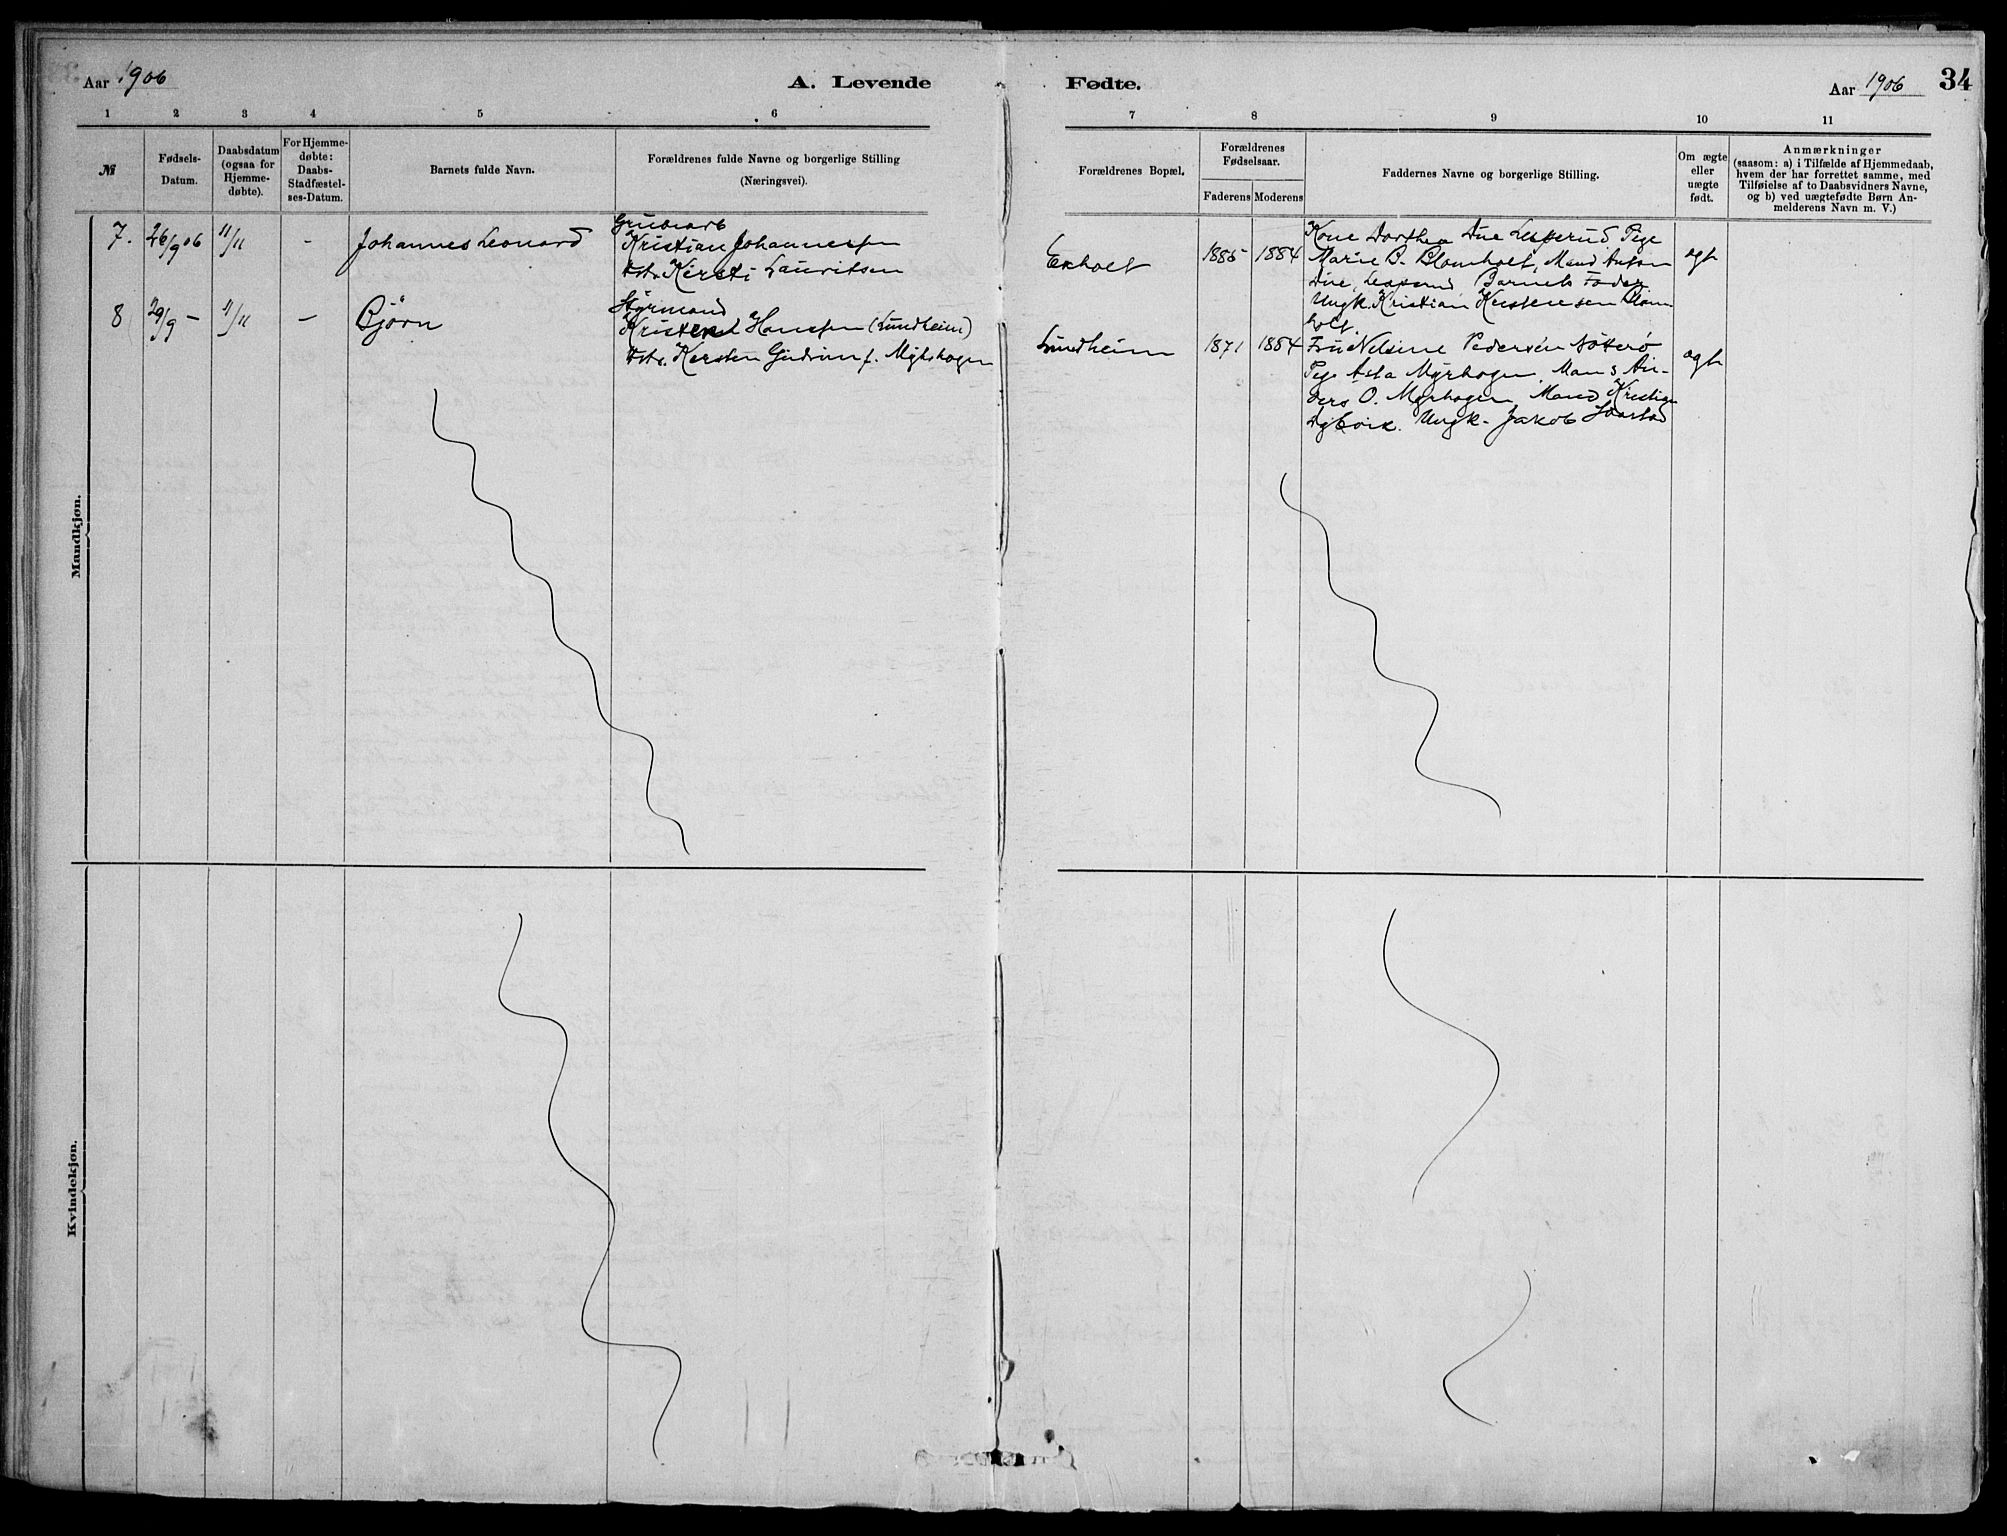 Aar 1906
A. Levende
Fødte.
Aar 1906
34
1 2 3 4 5 6 7 8 9 10 11
№
Fødsels-
Datum.
Daabsdatum
(ogsaa for
Hjemme-
døbte).
For Hjemme-
døbte:
Daabs-
Stadfæstel-
ses-Datum.
Barnets fulde Navn.
Forældrenes fulde Navne og borgerlige Stilling
(Næringsvei).
Forældrenes Bopæl.
Forældrenes
Fødselsaar.
Faderens Moderens
Faddernes Navne og borgerlige Stilling.
Om ægte
eller
uægte
født.
Anmærkninger
(saasom: a) i Tilfælde af Hjemmedaab,
hvem der har forrettet samme, med
Tilføielse af to Daabsvidners Navne,
og b) ved uægtefødte Børn An-
melderens Navn m. V.)
Mandkjøn.
7. 26/9 06 11/11 - Johannes Leonard
Grubearb
Kristian Johannessen
Hstr. Kirsti Lauritsen
Ekholt 1885 1884
Kone Dorthea Due Pige
Marie B. Blomholt, Mand Anton
Due, Barnets Fader
Ungk. Kristian Kristensen Blom-
holt.
ægt
8 29/9 - 11/11 - Bjørn
Styrmand
Kristen Hansen (Lundheim)
Hstr. Kirsten Gudrun f.
Lundheim 1871 1884
Fru Nelsine Pedersen Nøtterø
Pige Asta Myrhagen, Mand An-
ders O. Myrhagen Mand Kristian
Dybvik. Ungk. Jakob
ægt
Kvindekjøn.